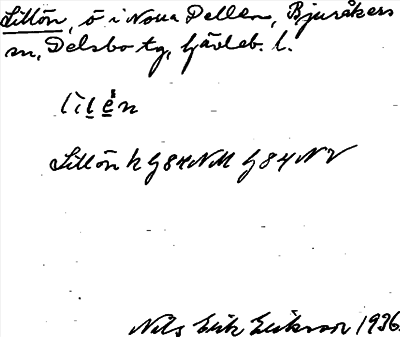 Lillön, ö i Norra Dellen, Bjuråkers
sn, Delsbo tg, Gävleb. l.
lìlẹn
Lillön h G84NM G84NV
Nils Erik Eriksson 1936